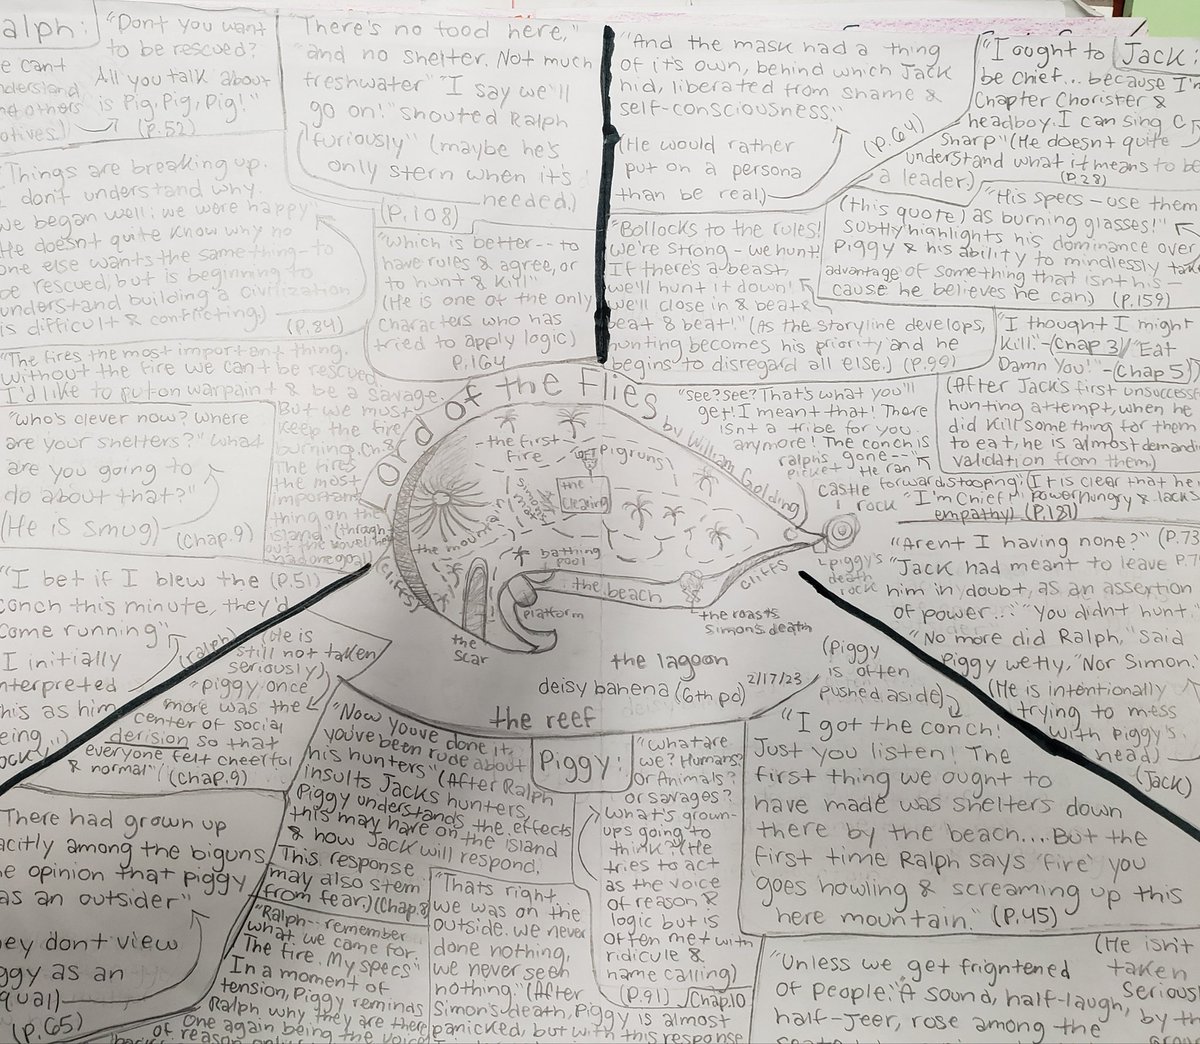 Ralph:
"Dont you want
to be rescued?
All you talk about
is Pig, Pig, Pig!"
(P.52)
e cant
nderstand
otives.)
There's no food here,"
"and no shelter. Not much
freshwater" "I say we'll
go on!" shouted Ralph
furiously" (maybe he's
only stern when it's
needed.)
(P.108)
"Things are breaking up.
I dont understand why.
We began well; we were happy"
(He doesnt quite know why no
one else wants the same thing- to
be rescued, but is beginning to
understand building a civilization
is difficult & conflicting.)
(P.84)
"which is better-- to
have rules & agree, or
to hunt & kill"
(He is one of the only
characters who has
tried to apply logic)
P.164
"The fires the most important thing.
without the fire we cant be rescued.
I'd like to put on warpaint & be a savage.
But we must
keep the fire
burning. Ch.8
The fires
the most
important
thing on the
island "(through
out the novel he
had one goal)
"who's clever now? Where
are your shelters?" what
are you going to
do about that?"
(He is smug)
(Chap.9)
"And the mask had a thing
of its own, behind which Jack
hid, liberated from shame &
self-consciousness."
(P.64)
(He would rather
put on a persona
than be real.)
Jack:
"I ought to
be chief... because I'm
Chapter Chorister &
headboy. I can sing C
Sharp" (He doesnt quite
understand what it means to be
a leader.)
(P.28)
"His specs - use them
as burning glasses!"
(this quote)
subtly highlights his dominance over
Piggy & his ability to mindlessly take
advantage of something that isnt his -
cause he believes he can) (P.159)
"Bollocks to the rules!
we're strong - we hunt!
If there's a beast,
we'll hunt it down!
we'll close in & beat &
beat & beat!" (As the storyline develops,
hunting becomes his priority and he
begins to disregard all else.) (P.99)
"I thought I might
Kill." - (Chap 3) "Eat
Damn You!" - (Chap 5)
(After Jack's first unsuccess
hunting attempt, when he
did kill something for them
to eat, he is almost demandi
validation from them)
"See? See? That's what you'll
get! I meant that! There
isnt a tribe for you
anymore! The conch is
gone--"
ralphs
picket
He ran
forward stooping. (It is clear that he
"I'm Chief!" power hungry & lacks
empathy) (P.181)
Lord of the Flies
by William Golding
the first
fire
Pigruns
the
clearing
Simons
the mountain
bathing
pool
the beach
platform
the
Scar
(cliffs)
cliffs
castle
rock
piggy's
death
rock
the roasts
Simon's death
the lagoon
deisy bahena (6th pd) 2/17/23
the reef
"I bet if I blew the (P.51)
conch this minute, they'd
come running"
(ralph)
I initially
nterpreted
his as him
eing
(He is
still not taken
seriously)
"piggy once
more was the
center of social
derision so that
everyone felt cheerful
& normal" (Chap.9)
There had grown up
acitly among the biguns
e opinion that piggy
as an outsider"
ey dont view
ggy as an
qual)
(P.65)
"Now you've done it,
you've been rude about
his hunters" (After Ralph
insults Jacks hunters,
Piggy understands the effects
this may have on the island
& how Jack will respond.
This response
may also stem
from fear.) (Chap.8)
"Ralph-- remember
what we came for.
The fire. My specs"
In a moment of
tension, Piggy reminds
Ralph why they are there
One again being the voice
of reason
Piggy:
"what are
we? Humans?
Or Animals?
Or savages?
What's grown-
ups going to
think?" (He
tries to act
as the voice
of reason &
logic but is
often met with
ridicule &
name calling)
(P.91)
Chap.10
"Thats right
we was on the
outside. we never
done nothing,
we never seen
nothing." (After
Simon's death, Piggy is almost
panicked, but with this response
"Arent I having none?" (P.73
"Jack had meant to leave
him in doubt, as an assertion
of power..." "You didnt hunt,
"No more did Ralph," said
Piggy wetly, "Nor Simon.
(He is intentionally
trying to mess
with piggy's
head)
(Jack)
(Piggy
is often
pushed aside)
"I got the conch!
Just you listen! The
first thing we ought to
have made was shelters down
there by the beach... But the
first time Ralph says 'fire' you
goes howling & screaming up this
here mountain." (P.45)
"Unless we get frightened
of people." A sound, half-laugh,
half-jeer, rose among the
(He isnt
taken
Seriously
by th